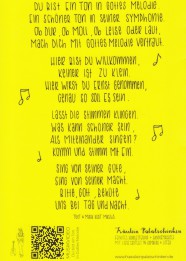 DU BIST EIN TON IN GOTTES MELODIE
EIN SCHÖNER TON IN SEINER SYMPHONIE.
OB DUR, OB MOLL, OB LEISE ODER LAUT,
MACH DICH MIT GOTTES MELODIE VERTRAUT.
HIER BIST DU WILLKOMMEN,
KEINER IST ZU KLEIN.
HIER WIRST DU ERNST GENOMMEN,
GENAU SO SOLL ES SEIN.
LASST DIE STIMMEN KLINGEN.
WAS KANN SCHÖNER SEIN,
ALS MITEINANDER SINGEN?
KOMM UND STIMM MIT EIN.
SING VON SEINER GÜTE,
SING VON SEINER MACHT.
BITTE, GOTT, BEHÜTE
UNS BEI TAG UND NACHT.
Fräulein